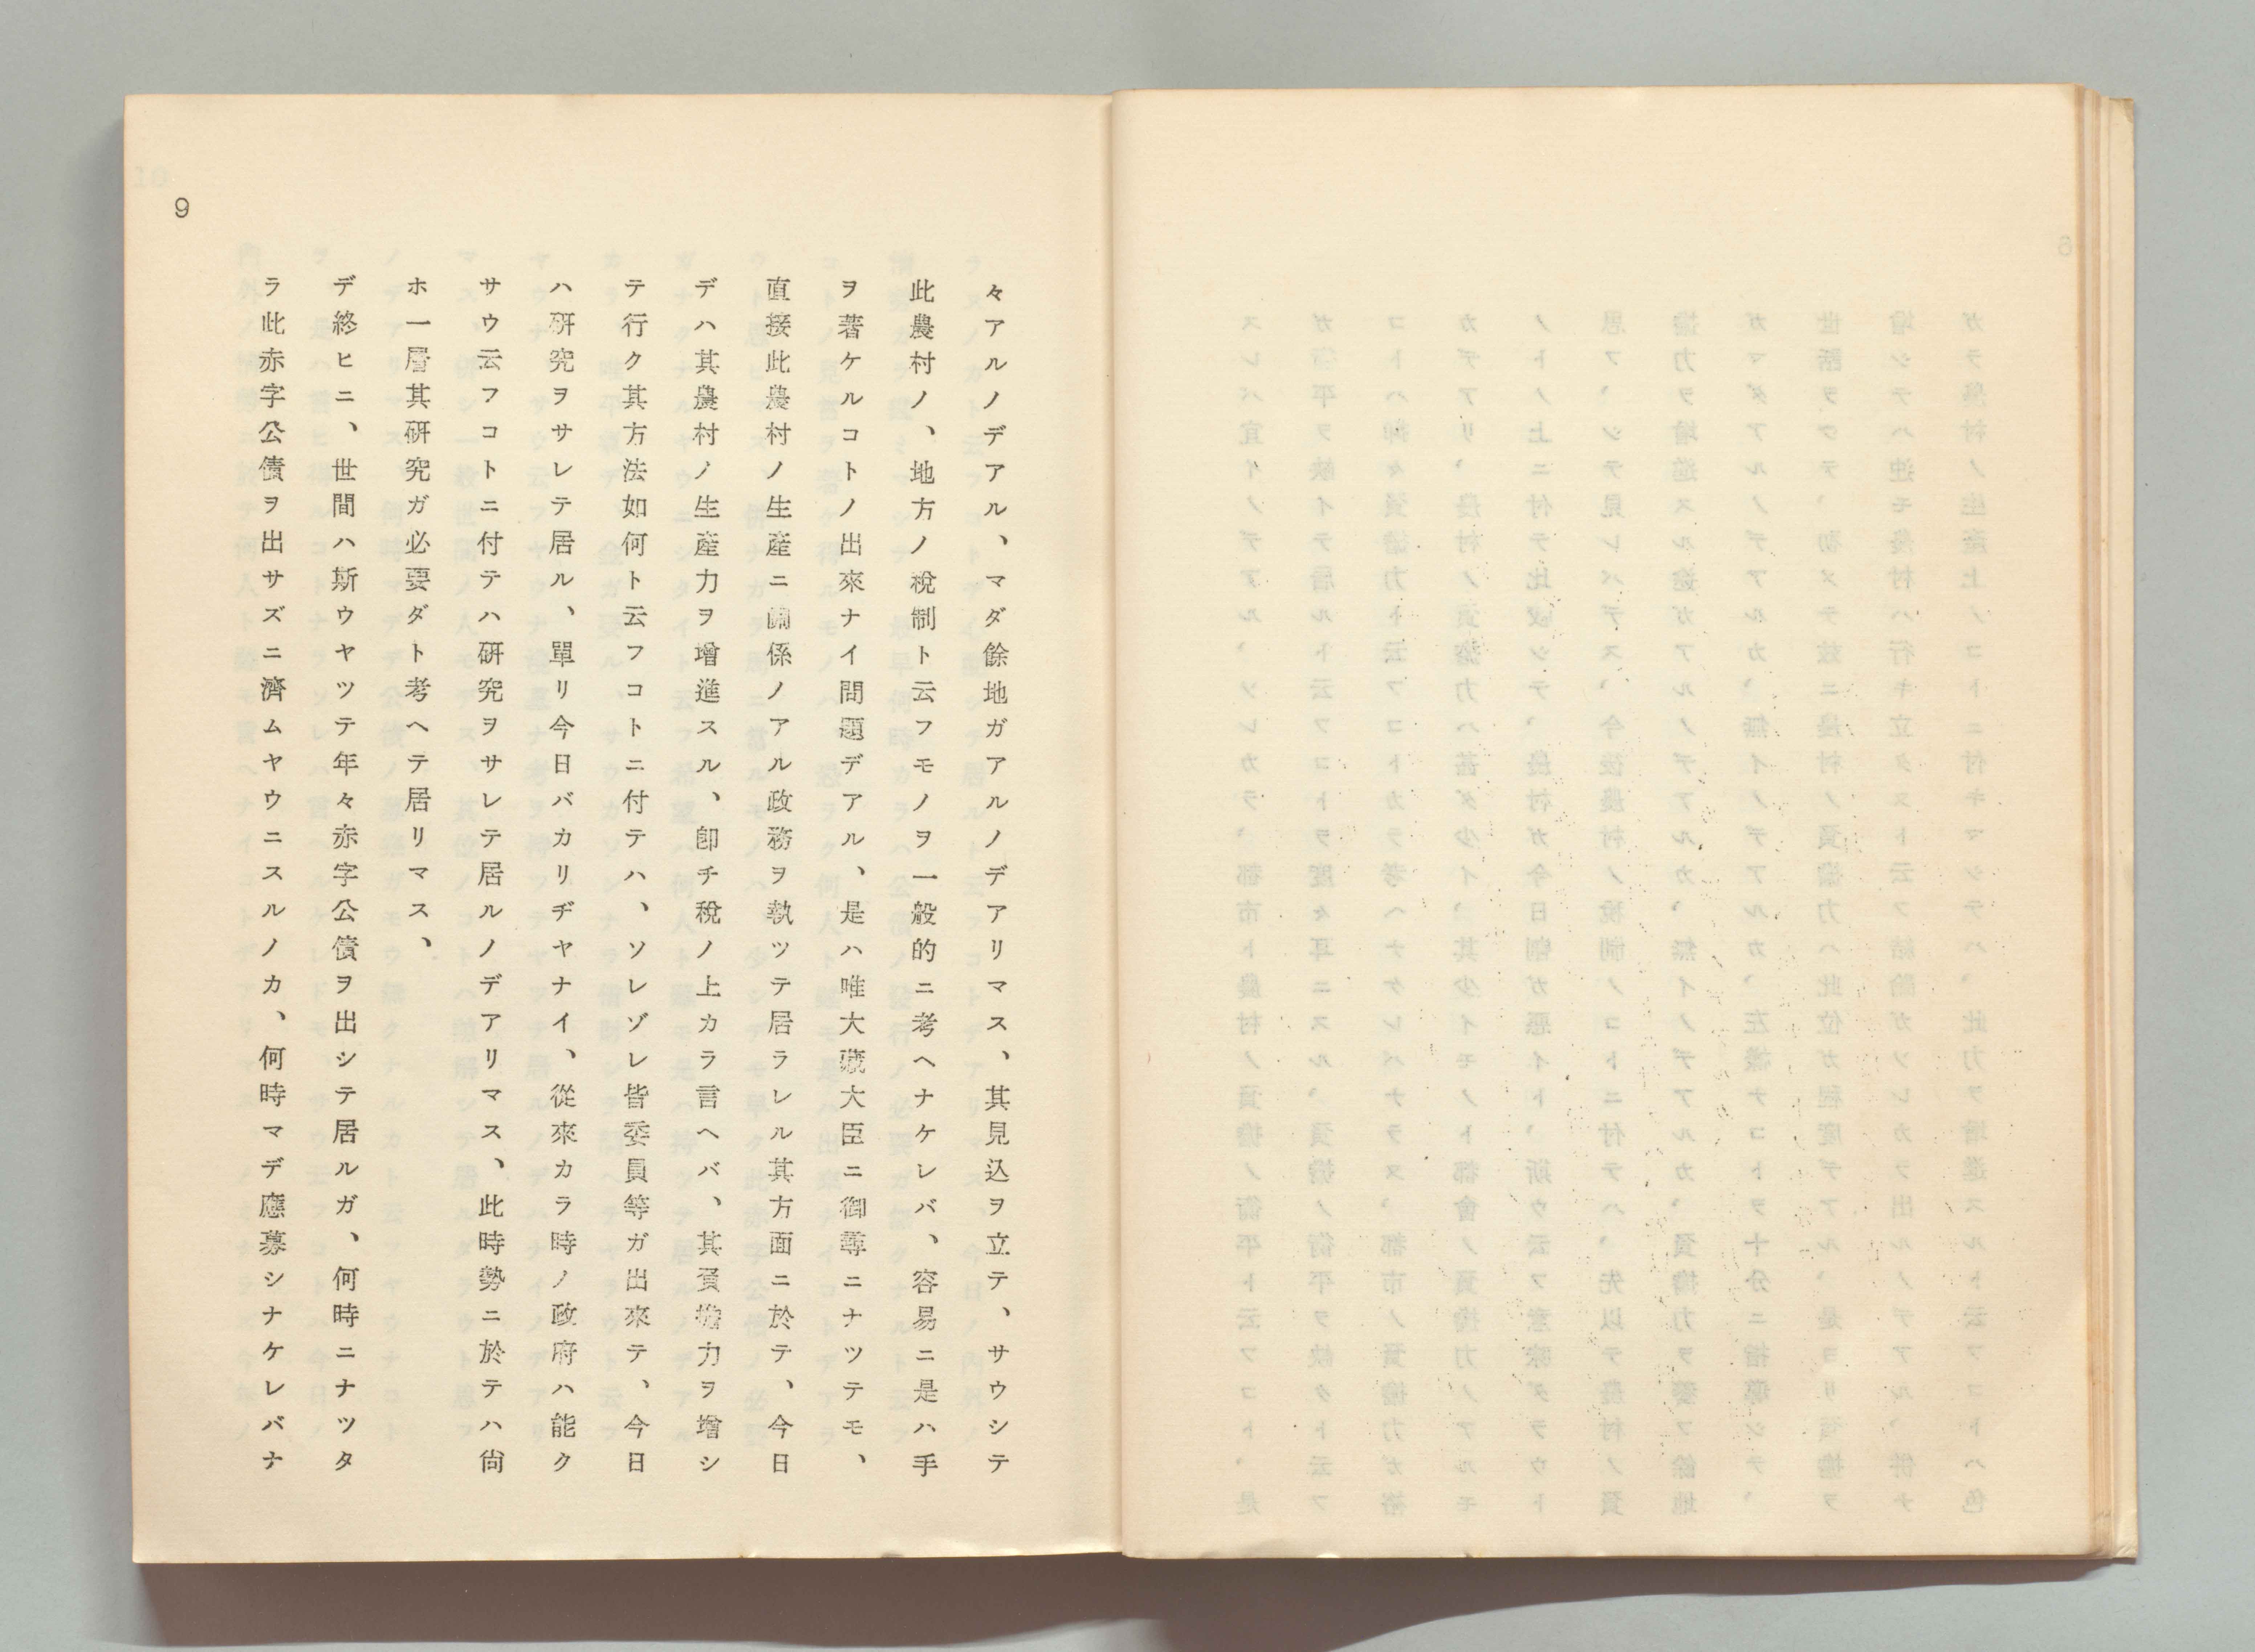 々アルノデアル、マダ餘地ガアルノデアリマス、其見込ヲ立テ、サウシテ
此農村ノ、地方ノ稅制ト云フモノヲ一般的ニ考ヘナケレバ、容易ニ是ハ手
ヲ著ケルコトノ出來ナイ問題デアル、是ハ唯大藏大臣ニ御尋ニナツテモ、
直接此農村ノ生產ニ關係ノアル政務ヲ執ツテ居ラレル其方面ニ於テ、今日
デハ其農村ノ生產力ヲ增進スル、卽チ稅ノ上カラ言ヘバ、其負擔力ヲ增シ
テ行ク其方法如何ト云フコトニ付テハ、ソレゾレ皆委員等ガ出來テ、今日
ハ硏究ヲサレテ居ル、單リ今日バカリヂヤナイ、從來カラ時ノ政府ハ能ク
サウ云フコトニ付テハ硏究ヲサレテ居ルノデアリマス、此時勢ニ於テハ尙
ホ一層其硏究ガ必要ダト考ヘテ居リマス、
デ終ヒニ、世間ハ斯ウヤツテ年々赤字公債ヲ出シテ居ルガ、何時ニナツタ
ラ此赤字公債ヲ出サズニ濟ムヤウニスルノカ、何時マデ應募シナケレバナ
9